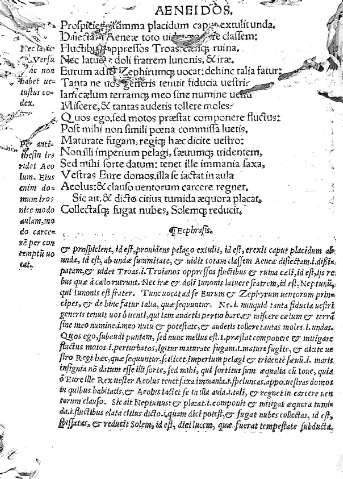 AENEIDOS.
Prospiciens summa placidum caput extulit unda.
Disiectam Aeneæ toto uidet æquore classem;
Fluctibus oppressos Troas, cœlique ruina,
Nec latuere doli fratrem Iunonis, & iræ.
Eurum ad se Zephirumq; uocat; dehinc talia fatur;
Tanta ne uos generis tenuit fiducia uestri?
Iam cælum terramq; meo sine numine uenti
Miscere, & tantas audetis tollere moles?
Quos ego, sed motos præstat componere fluctus;
Post mihi non simili pœna commissa luetis,
Maturate fugam, regiq; hæc dicite uestro;
Non illi imperium pelagi, sæuumq; tridentem,
Sed mihi sorte datum: tenet ille immania saxa,
Vestras Eure domos, illa se iactat in aula
Aeolus; & clauso uentorum carcere regnet,
Sic ait, & dicto citius tumida æquora placat,
Collectasq; fugat nubes, Solemq; reducit,
Nec latue
Versu
ac non
habet ue-
tustus co-
dex.
Per anti-
thesin tro
ridet Aeo
lum. Eius
enim do-
mum tro-
nice modo
aulam, mo
do carcer
cõ per con
temptũ uo
cat.
¶Ecphrasis.
& prospiciens, id est, prouidens pelago extulit, id est, erexit caput placidum ab
unda, id est, ab unda summitate, & uidet totam classem Aeneæ disiectam .i. dissi-
patam, & uidet Troas .i. Troianos oppressos fluctibus & ruina cæli, id est,
Nec iræ & doli Iunonis latuere fratrem, id est, Neptunũ,
qui Iunonis est frater. Tunc uocat ad se Eurum & Zephyrum uentorum prin-
cipes, & de hinc fatur talia, quæ sequuntur.
generis tenuit uos ò uenti, qui tam audetis perturbare, & miscere cælum & terrã
sine meo numine .i. meo nutu & potestate, & audetis tollere tantas moles .i. undas.
Quos ego, subaudi puniam, sed nunc melius est .i. præstat componere & mitigare
fluctus motos .i. perturbatos, igitur maturate fugam .i. mature fugite, & dicite ue-
stro Regi hæc, quæ sequuntur, scilicet Imperium pelagi & tridentẽ sæuũ .i. maris
insignia nõ datum esse illi sorte, sed mihi,
ò Eure ille Rex uester Aeolus tenet saxa immania .i. speluncas, uestras domos
in quibus habitatis, & Aeolus iactet se in illa aula, & regnet in carcere uen-
torum clauso. Sic ait Neptunus & placat .i. componit & mitigat æquora tumi-
da .i. fluctibus elata citius dicto .i. quam dici potest, & fugat nubes collectas, id est,
spissatas, & reducit Solem, id est, diei lucem, quæ fuerat tempestate subducta.